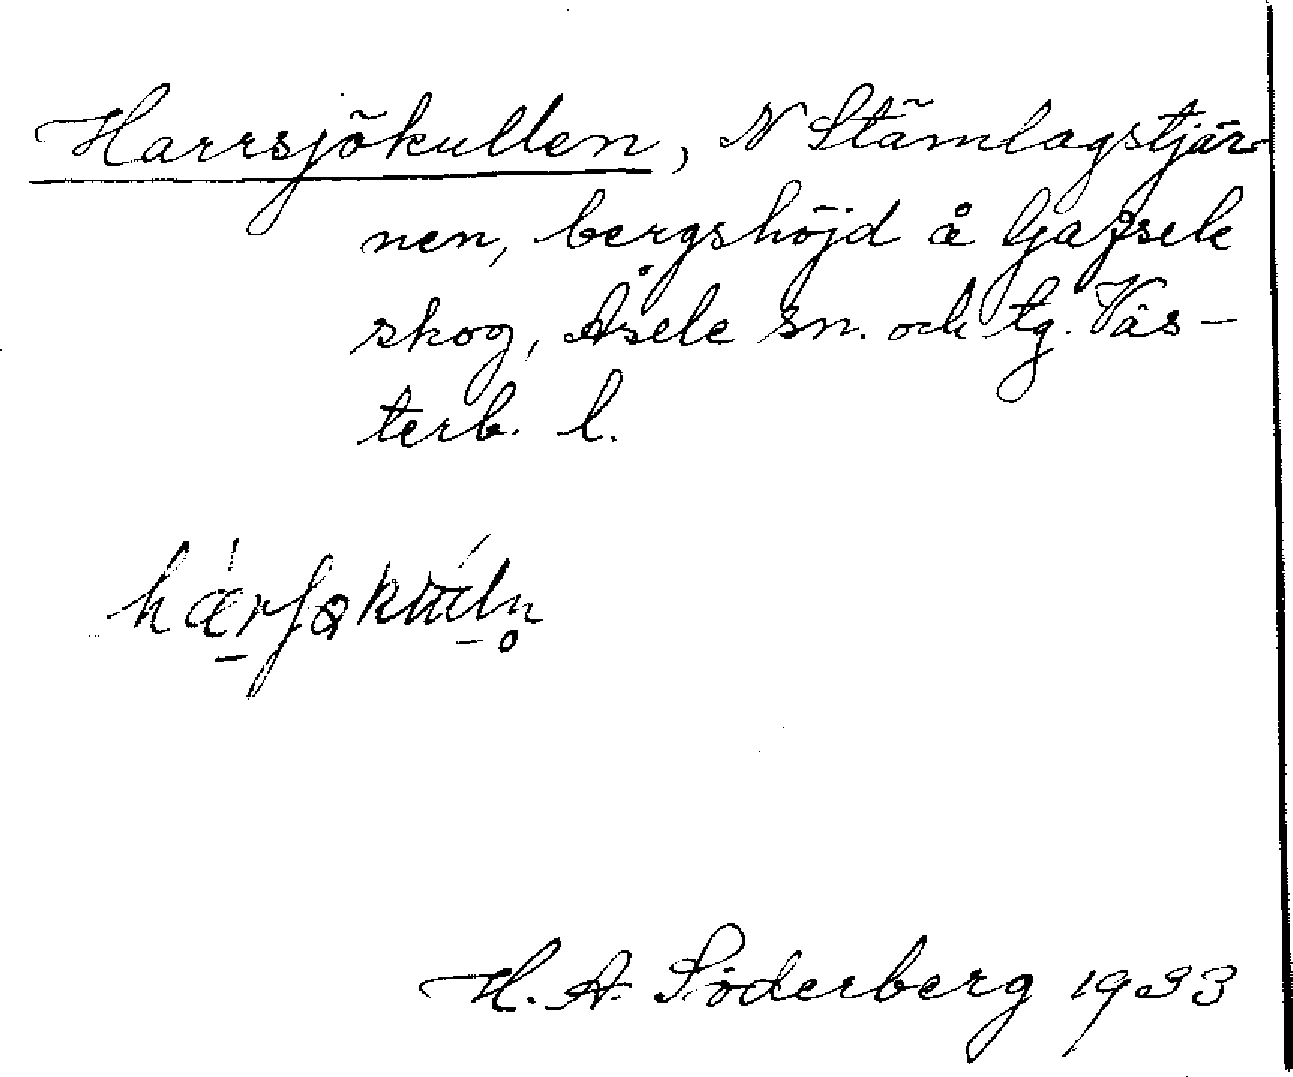 Harrsjökullen, N Stämlagstjär-
nen, bergshöjd å Gafsele
skog, Åsele sn. och tg. Väs-
terb. l.
H. A. Söderberg 1933